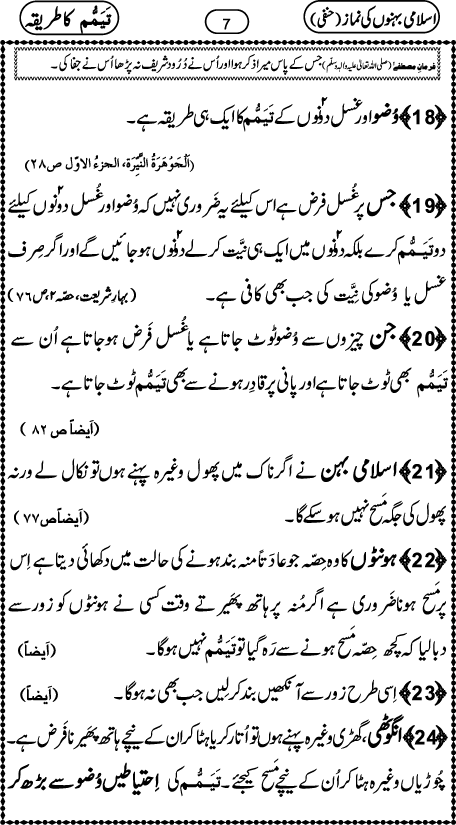 اسلامی بہنوں کی نماز (حنفی) 7 تَیَمُّم کا طریقہ
فرمانِ مصطفےٰ (صلی اللہ تعالیٰ علیہ والہٖ وسلم) جس کے پاس میرا ذکر ہوا اور اُس نے دُرُود شریف نہ پڑھا اُس نے جفا کی۔
﴿18﴾ وُضو اور غسل دونوں کے تَیَمُّم کا ایک ہی طریقہ ہے۔
(اَلْجَوْھَرَۃُ النَّیِّرَۃ، الجزءُ الاوّل ص۲۸)
﴿19﴾ جس پر غُسل فرض ہے اس کیلئے یہ ضَروری نہیں کہ وُضو اور غسل دونوں کیلئے
دو تَیَمُّم کرے بلکہ دونوں میں ایک ہی نیّت کر لے دونوں ہو جائیں گے اور اگر صِرف
غسل یا وُضو کی نِیَّت کی جب بھی کافی ہے۔ (بہارِ شریعت، حصّہ ۲، ص۷۶)
﴿20﴾ جن چیزوں سے وُضو ٹوٹ جاتا ہے یا غُسل فرض ہو جاتا ہے اُن سے
تَیَمُّم بھی ٹوٹ جاتا ہے اور پانی پر قادِر ہونے سے بھی تَیَمُّم ٹوٹ جاتا ہے۔
(اَیضاً ص ۸۲)
﴿21﴾ اسلامی بہن نے اگر ناک میں پھول وغیرہ پہنے ہوں تو نکال لے ورنہ
پھول کی جگہ مَسح نہیں ہو سکے گا۔ (اَیضاً ص۷۷)
﴿22﴾ ہونٹوں کا وہ حِصّہ جو عادَتاً منہ بند ہونے کی حالت میں دکھائی دیتا ہے اِس
پر مَسح ہونا ضَروری ہے اگر مُنہ پر ہاتھ پھیرتے وقت کسی نے ہونٹوں کو زور سے
دبا لیا کہ کچھ حِصّہ مَسح ہونے سے رَہ گیا تو تَیَمُّم نہیں ہوگا۔ (اَیضاً)
﴿23﴾ اِسی طرح زور سے آنکھیں بند کر لیں جب بھی نہ ہوگا۔ (اَیضاً)
﴿24﴾ انگوٹھی، گھڑی وغیرہ پہنے ہوں تو اُتار کر یا ہٹا کر ان کے نیچے ہاتھ پھیرنا فَرض ہے۔
چُوڑیاں وغیرہ ہٹا کر اُن کے نیچے مَسح کیجئے۔ تَیَمُّم کی اِحتیاطیں وُضو سے بڑھ کر